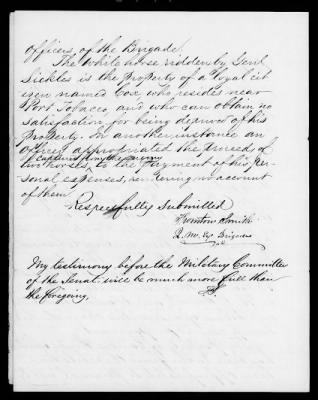 officers of the Brigade.
The white horse ridden by Genl
Sickles is the property of a loyal cit
izen named Cox who resides near
Port Tobacco, and who can obtain no
satisfaction for being deprived of his
property. In another instance an
officer appropriated the proceed of
captured from the enemy
two horses to the payment of his per
sonal expenses, rendering no account
of them
Respectfully Submitted
Thornton Smith
Q. M. Ex. Brigade
My testimony before the Military Committee
of the Senate will be much more full than
the foregoing.